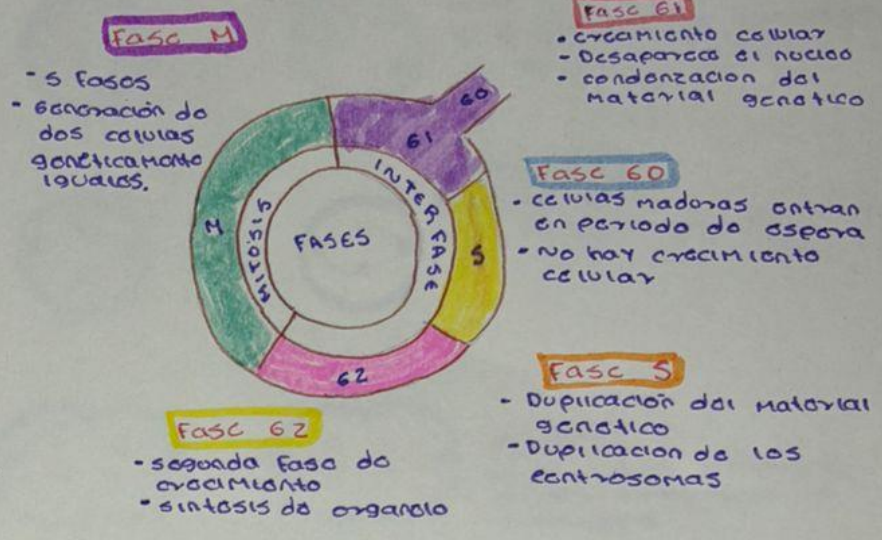 Fase M
- 5 Fases
- Generación de
dos celulas
genéticamente
iguales.
Fase G1
• crecamiento celular
- Desaparece el nucleo
- condenzacion del
material genetico
G0
G1
INTERFASE
S
G2
M
MITÓSIS
FASES
Fase G0
• celulas madoras entran
en periodo de espera
• No hay crecimiento
celular
Fase S
- Duplicación del material
genetico
- Duplicacion de los
centrosomas
Fase G2
- segunda Fase de
crecimiento
- sintesis de organelo